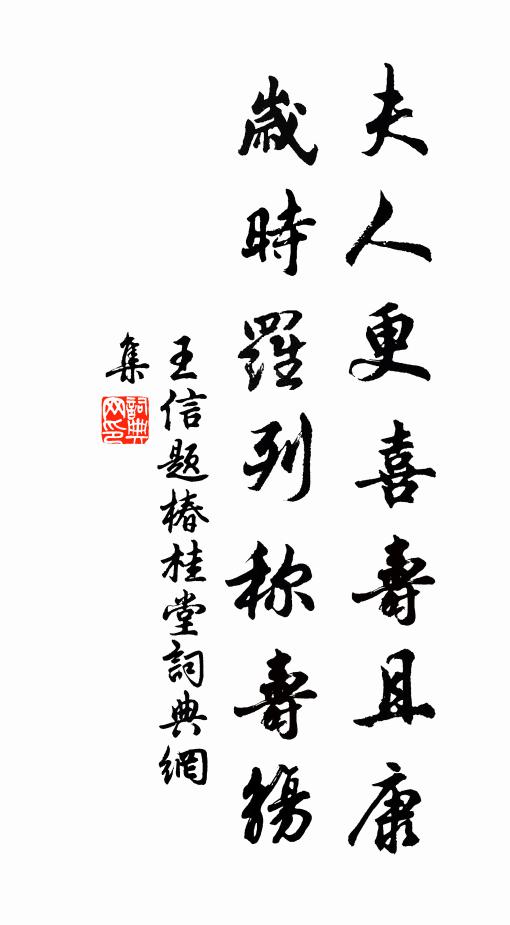 夫人更喜壽且康
歲時羅列称壽觴
王信题椿桂堂詞典網
集
詞典网印